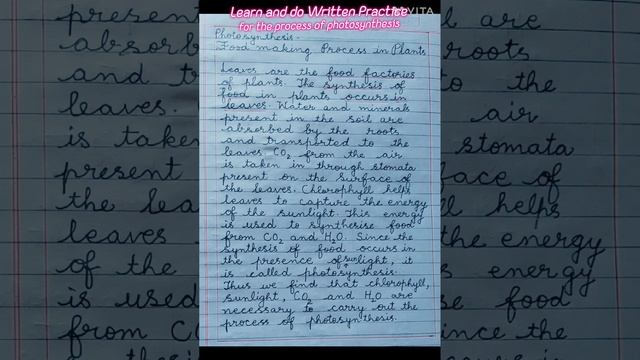 Learn and do Written Practice
VITA
for the process of photosynthesis
Photosynthesis -
Food making Process in Plants
Leaves are the food factories
of plants. The synthesis of
food in plants occurs in
leaves. Water and minerals
present in the soil are
absorbed by the roots
and transported to the
leaves CO2 from the air
is taken in through stomata
present on the surface of
the leaves. Chlorophyll helps
leaves to capture the energy
of the sunlight. This energy
is used to synthesise food
from CO2 and H2O. Since the
synthesis of food occurs in
the presence of sunlight, it
is called photosynthesis.
Thus we find that chlorophyll,
sunlight, CO2 and H2O are
necessary to carry out the
process of photosynthesis.